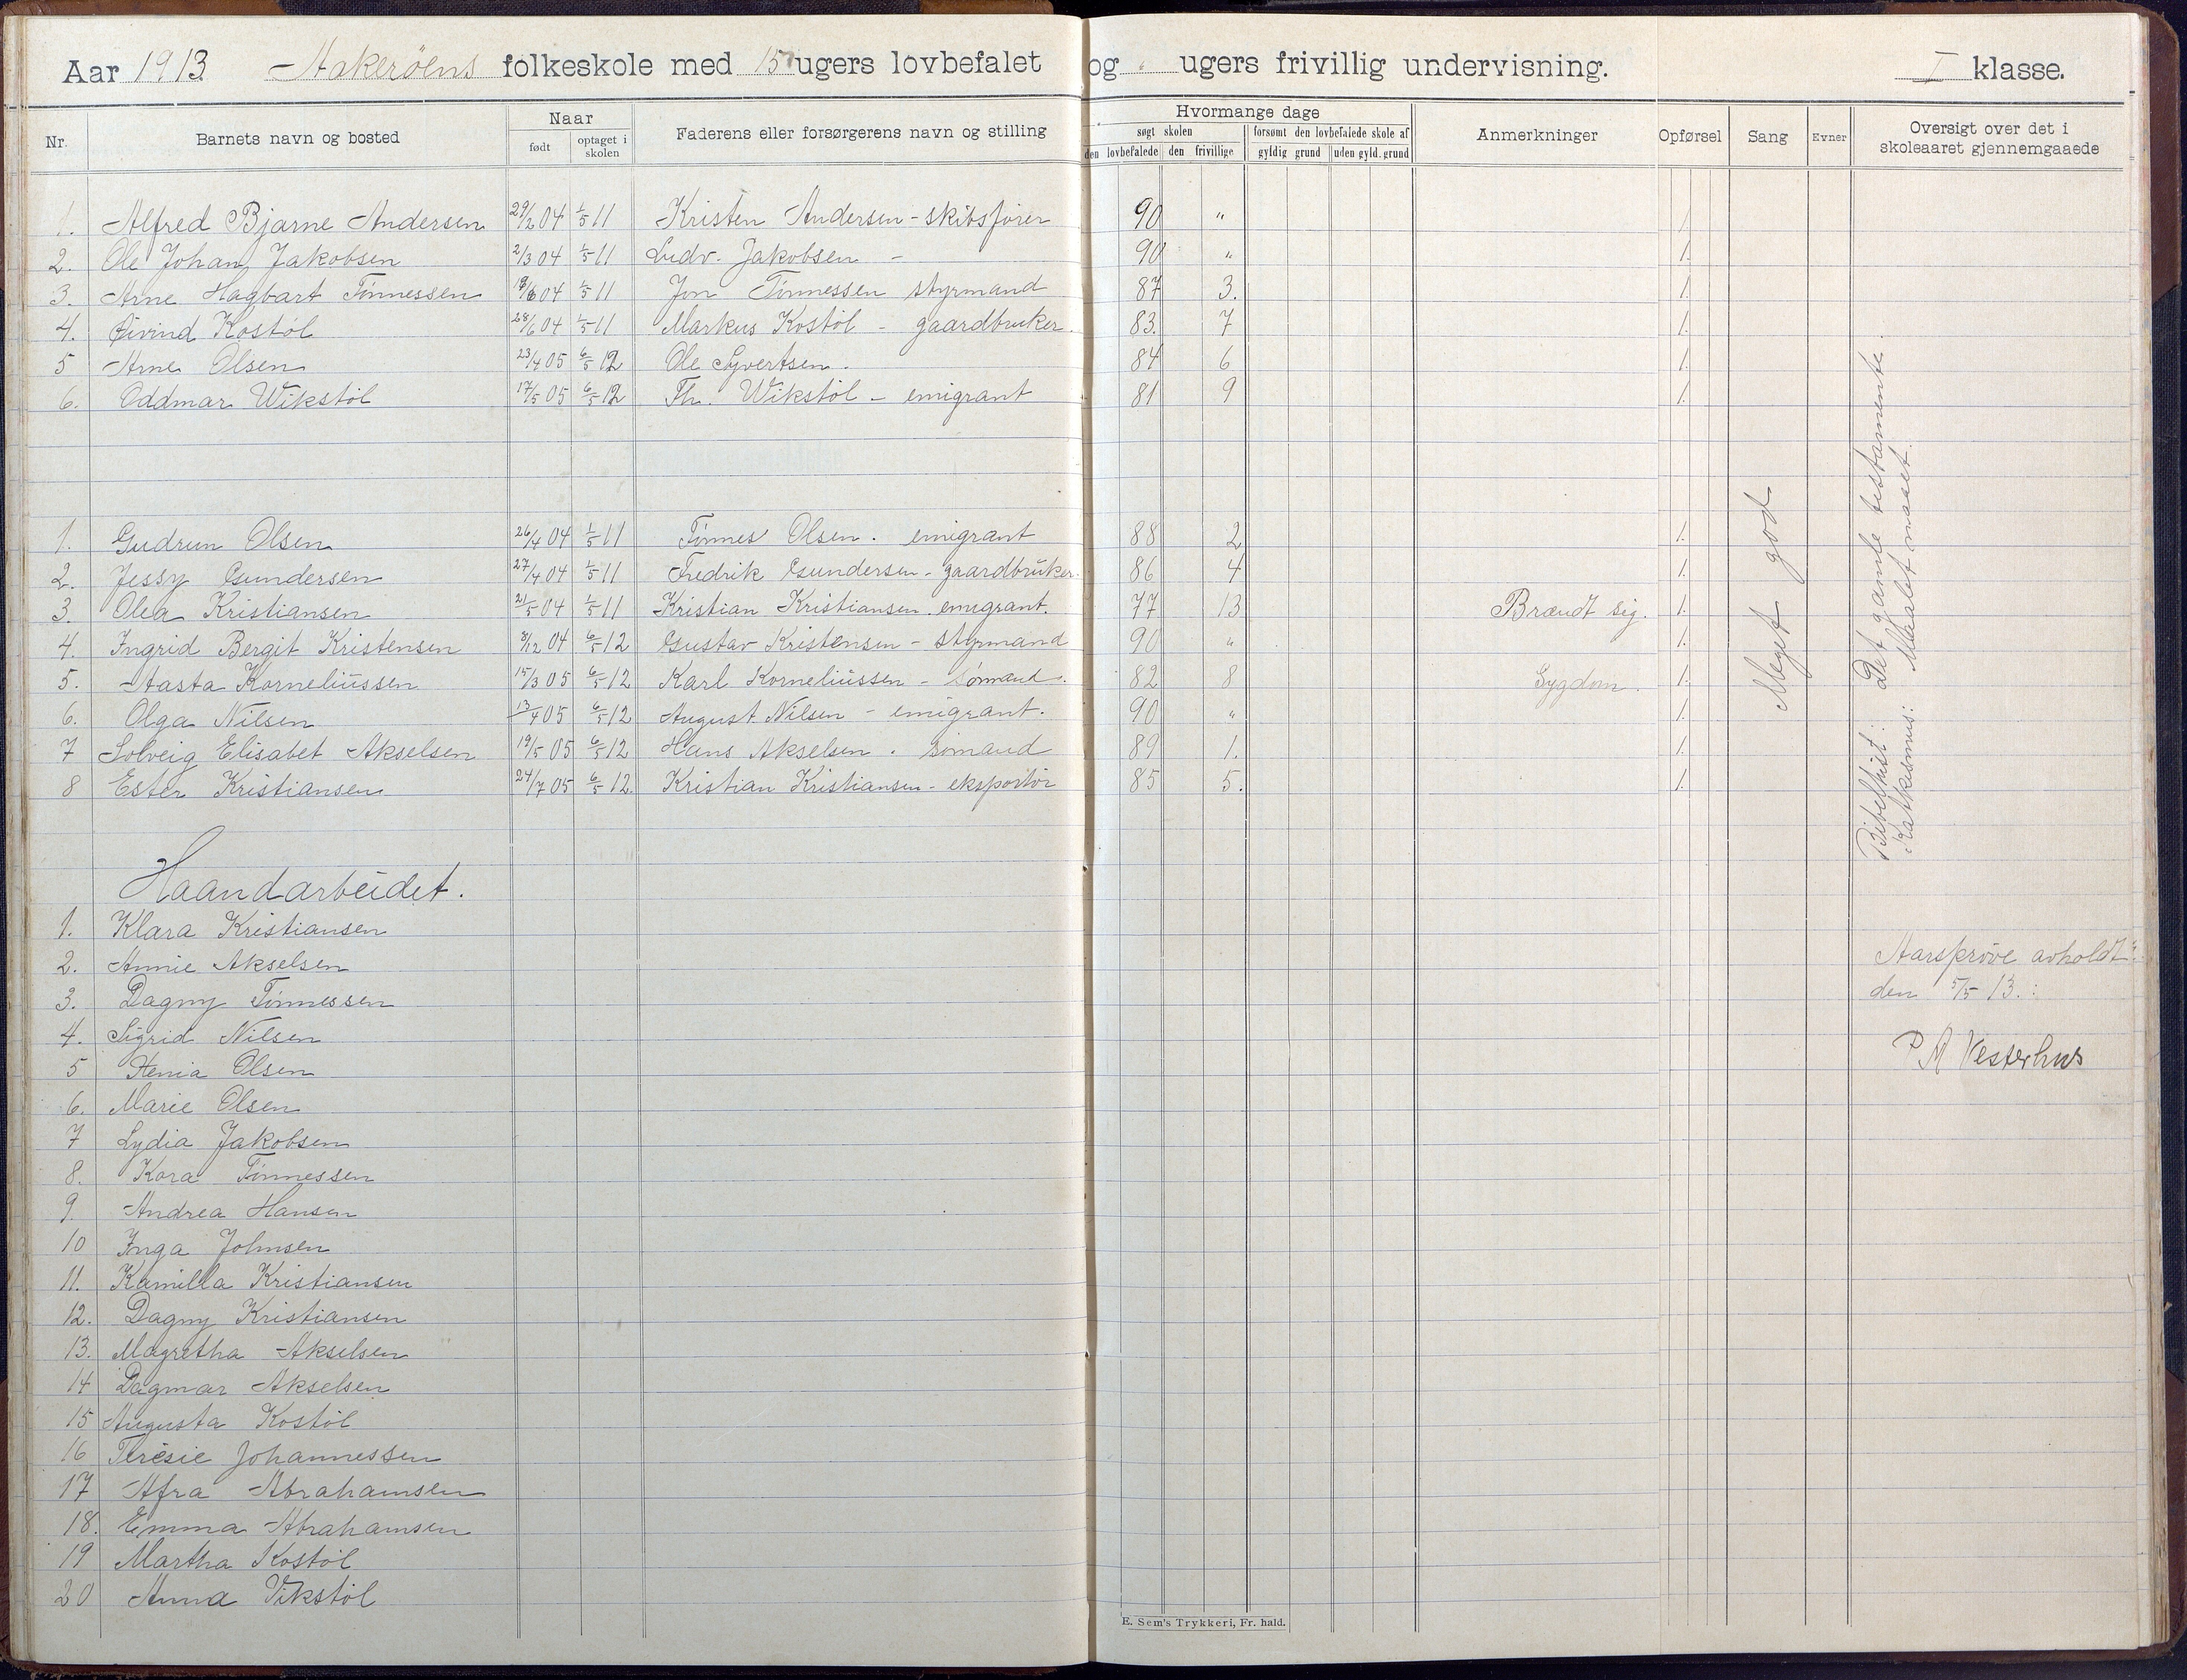 Aar 1913 Aakerøens folkeskole med 15 ugers lovbefalet og " ugers frivillig undervisning. I klasse.
Nr. Barnets navn og bosted Naar født optaget i skolen Faderens eller forsørgerens navn og stilling Hvormange dage søgt skolen den lovbefalede den frivillige forsømt den lovbefalede skole af gyldig grund uden gyld. grund Anmerkninger Opførsel Sang Evner Oversigt over det i skoleaaret gjennemgaaede
1. Alfred Bjarne Andersen 29/2 04 1/5 11 Kristen Andersen - skibsfører 90 " 1
2. Ole Johan Jakobsen 2/3 04 1/5 11 Ludv. Jakobsen - 90 " 1.
3. Arne Hagbart Tønnessen 18/6 04 1/5 11 Jon Tønnessen styrmand 87 3. 1.
4. Øivind Kostøl 28/6 04 1/5 11 Markus Kostøl - gaardbruker. 83. 7 1.
5 Arne Olsen 23/4 05 6/5 12 Ole Syvertsen. 84 6 1.
6. Oddmar Wikstøl 17/5 05 6/5 12 Th. Wikstøl - emigrant 81 9 1.
1. Gudrun Olsen 26/4 04 1/5 11 Tønnes Olsen. emigrant 88 2 1.
2. Jessy Gundersen 27/4 04 1/5 11 Fredrik Gundersen - gaardbruker. 86 4 1.
3. Olea Kristiansen 21/5 04 1/5 11 Kristian Kristiansen. emigrant. 77 13 Brændt sig. 1.
4. Ingrid Bergit Kristensen 8/12 04 6/5 12 Gustav Kristensen - styrmand 90 " 1.
5. Aasta Korneliussen 15/3 05 6/5 12 Karl Korneliussen - sømand. 82 8 Sygdom. 1.
6. Olga Nilsen 13/4 05 6/5 12 August Nilsen - emigrant. 90 " 1.
7 Solveig Elisabet Akselsen 19/5 05 6/5 12 Hans Akselsen. sømand 89 1. 1.
8 Ester Kristiansen 24/7 05 6/5 12. Kristian Kristiansen - eksportør 85 5. 1.
Meget god
Bibelhist: Det gamle testamente.
Katkismus: Maalet naaet.
Haandarbeidet.
1. Klara Kristiansen
2. Annie Akselsen
3. Dagny Tønnessen
4. Sigrid Nilsen
5 Henia Olsen
6. Marie Olsen
7 Lydia Jakobsen
8. Kora Tønnessen
9. Andrea Hansen
10 Inga Johnsen
11. Kamilla Kristiansen
12. Dagny Kristiansen
13. Magretha Akselsen
14 Dagmar Akselsen
15 Augusta Kostøl
16 Teresie Johannessen
17 Afra Abrahamsen
18. Emma Abrahamsen
19 Martha Kostøl
20 Anna Vikstøl
Aarsprøve avholdt
den 5/5 13.:
P M Vesterhus
E. Sem's Trykkeri, Fr. hald.